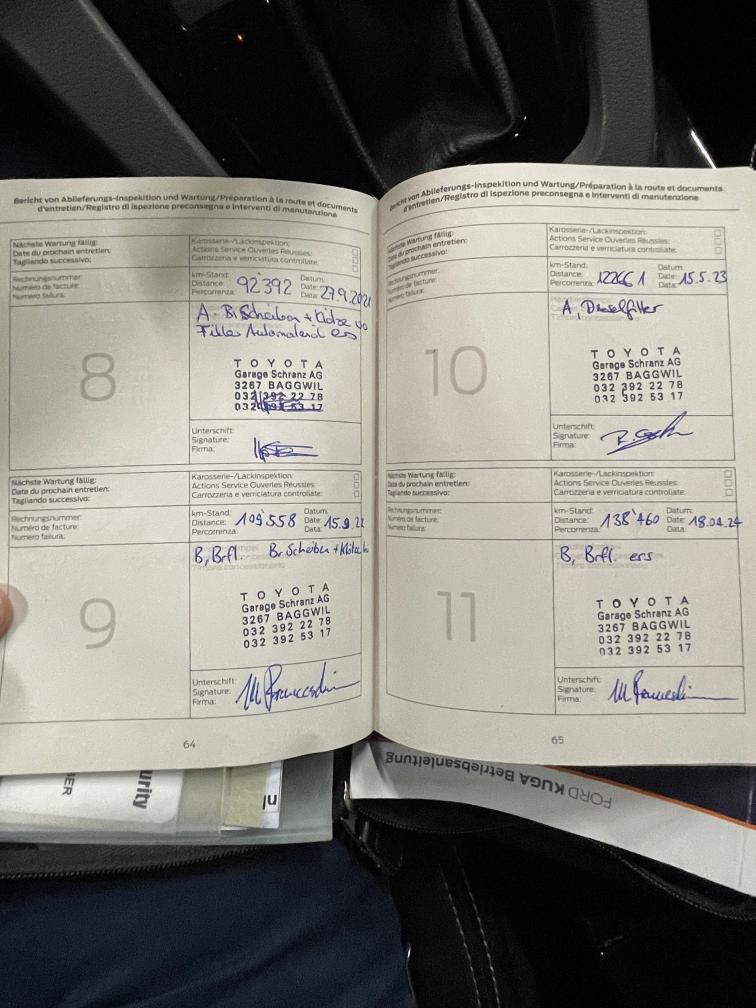 Bericht von Ablieferungs-Inspektion und Wartung/Préparation à la route et documents
d'entretien/Registro di ispezione preconsegna e interventi di manutenzione
Nächste Wartung fällig:
Date du prochain entretien:
Tagliando successivo:
Karosserie-/Lackinspektion:
Actions Service Ouvertes Réussies:
Carrozzeria e verniciatura controllate:
Rechnungsnummer:
Numéro de facture:
Numero fattura:
km-Stand:
Distance: 92'392
Percorrenza:
Datum:
Date: 27.9.2021
Data:
8
A. Br. Scheiben + Klötze vo
Filter Automaterial ers
T O Y O T A
Garage Schranz AG
3267 BAGGWIL
032 392 22 78
032 392 53 17
Unterschift:
Signature:
Firma:
Nächste Wartung fällig:
Date du prochain entretien:
Tagliando successivo:
Karosserie-/Lackinspektion:
Actions Service Ouvertes Réussies:
Carrozzeria e verniciatura controllate:
Rechnungsnummer:
Numéro de facture:
Numero fattura:
km-Stand:
Distance: 109'558
Percorrenza:
Datum:
Date: 15.9.22
Data:
9
B, Brfl. Br. Scheiben + Klötze h
T O Y O T A
Garage Schranz AG
3267 BAGGWIL
032 392 22 78
032 392 53 17
Unterschift:
Signature:
Firma:
64
Bericht von Ablieferungs-Inspektion und Wartung/Préparation à la route et documents
d'entretien/Registro di ispezione preconsegna e interventi di manutenzione
Nächste Wartung fällig:
Date du prochain entretien:
Tagliando successivo:
Karosserie-/Lackinspektion:
Actions Service Ouvertes Réussies:
Carrozzeria e verniciatura controllate:
Rechnungsnummer:
Numéro de facture:
Numero fattura:
km-Stand:
Distance: 122661
Percorrenza:
Datum:
Date: 15.5.23
Data:
10
A, Dieselfilter
T O Y O T A
Garage Schranz AG
3267 BAGGWIL
032 392 22 78
032 392 53 17
Unterschift:
Signature:
Firma:
Nächste Wartung fällig:
Date du prochain entretien:
Tagliando successivo:
Karosserie-/Lackinspektion:
Actions Service Ouvertes Réussies:
Carrozzeria e verniciatura controllate:
Rechnungsnummer:
Numéro de facture:
Numero fattura:
km-Stand:
Distance: 138'460
Percorrenza:
Datum:
Date: 18.04.24
Data:
11
B, Brfl. ers
T O Y O T A
Garage Schranz AG
3267 BAGGWIL
032 392 22 78
032 392 53 17
Unterschift:
Signature:
Firma:
65
FORD KUGA Betriebsanleitung
urity
ER